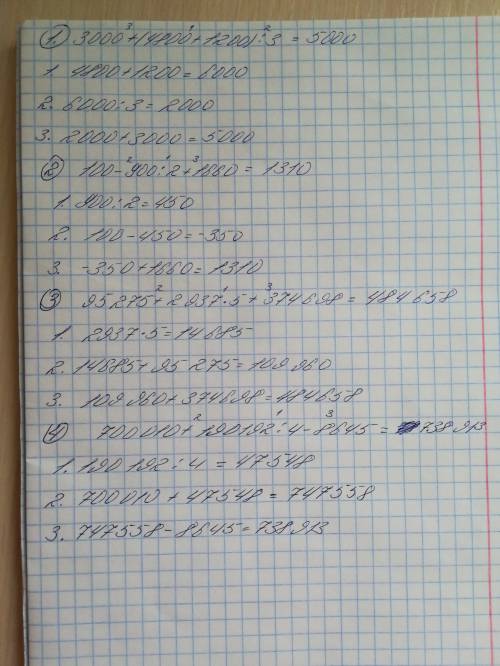 ① 3000 + (4800 + 1200) : 3 = 5000
3 1 2
1. 4800 + 1200 = 6000
2. 6000 : 3 = 2000
3. 2000 + 3000 = 5000
② 100 - 900 : 2 + 1660 = 1310
2 1 3
1. 900 : 2 = 450
2. 100 - 450 = -350
3. -350 + 1660 = 1310
③ 95275 + 2937 · 5 + 374698 = 484658
2 1 3
1. 2937 · 5 = 14685
2. 14685 + 95 275 = 109 960
3. 109 960 + 374698 = 484658
④ 700 010 + 190192 : 4 - 8645 = 738 913
2 1 3
1. 190 192 : 4 = 47548
2. 700 010 + 47548 = 747558
3. 747558 - 8645 = 738 913